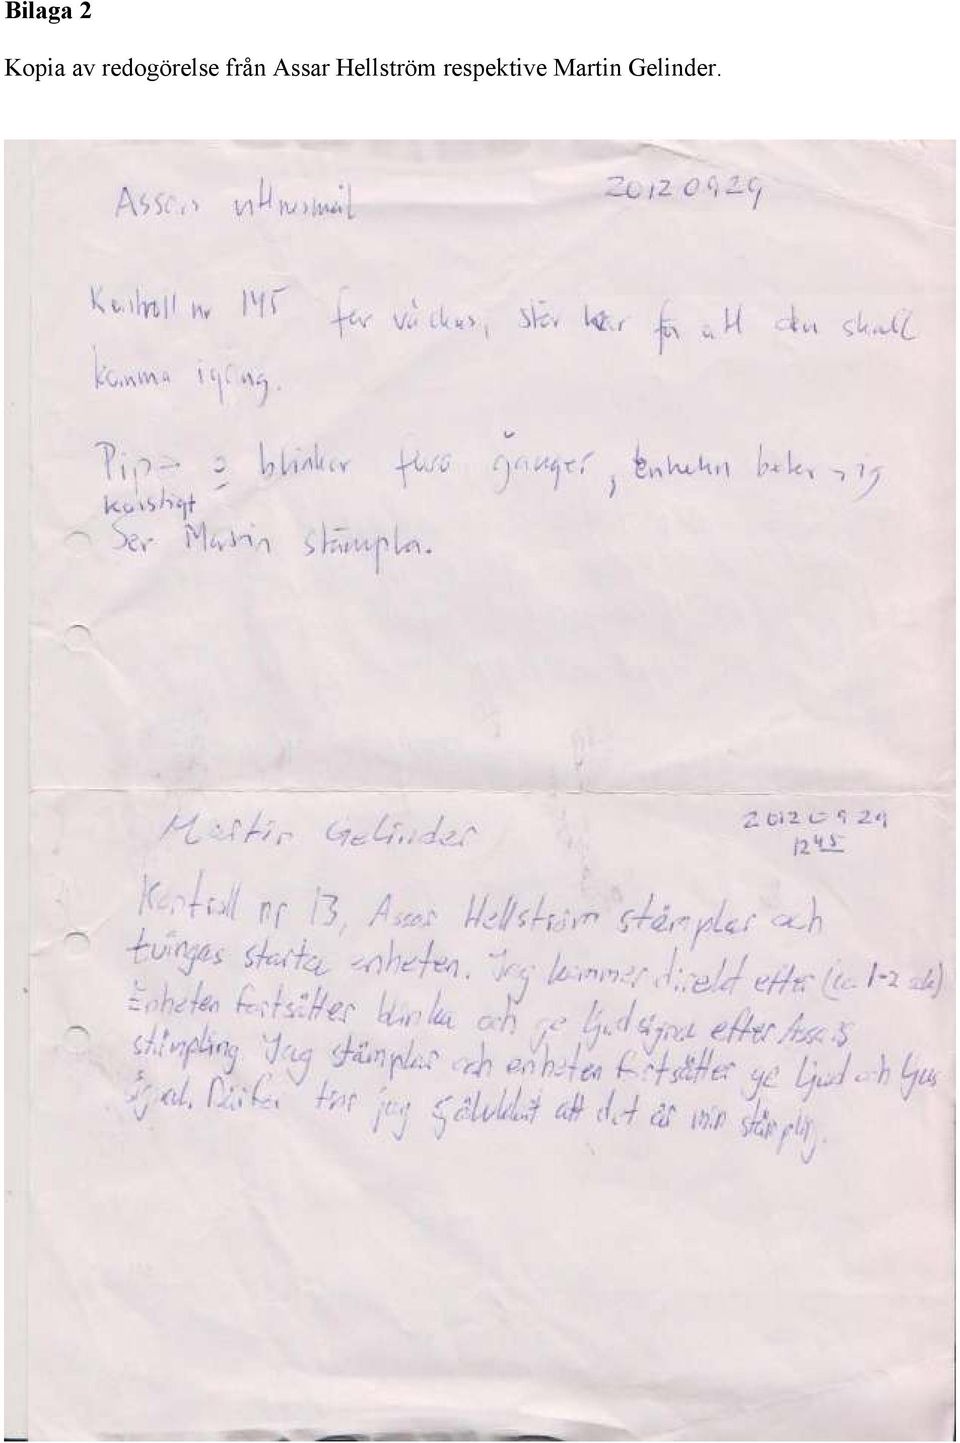 Bilaga 2
Kopia av redogörelse från Assar Hellström respektive Martin Gelinder.
Assars vittnesmål 20120929
Kontroll nr 145 får väckas, står här för att den skall
komma igång.
Pip blinkar två gånger, Enheten beter sig
konstigt
Ser Martin stämpla.
Martin Gelinder 20120929
1245
Kontroll nr 13, Assar Hellström stämplar och
tvingas starta enheten. Jag kommer direkt efter (ca 1-2 sek)
Enheten fortsätter blinka och ge ljudsignal efter Assars
stämpling Jag stämplar och enheten fortsätter ge ljud och ljus
signal. Därför tror jag självklart att det är min stämpling.